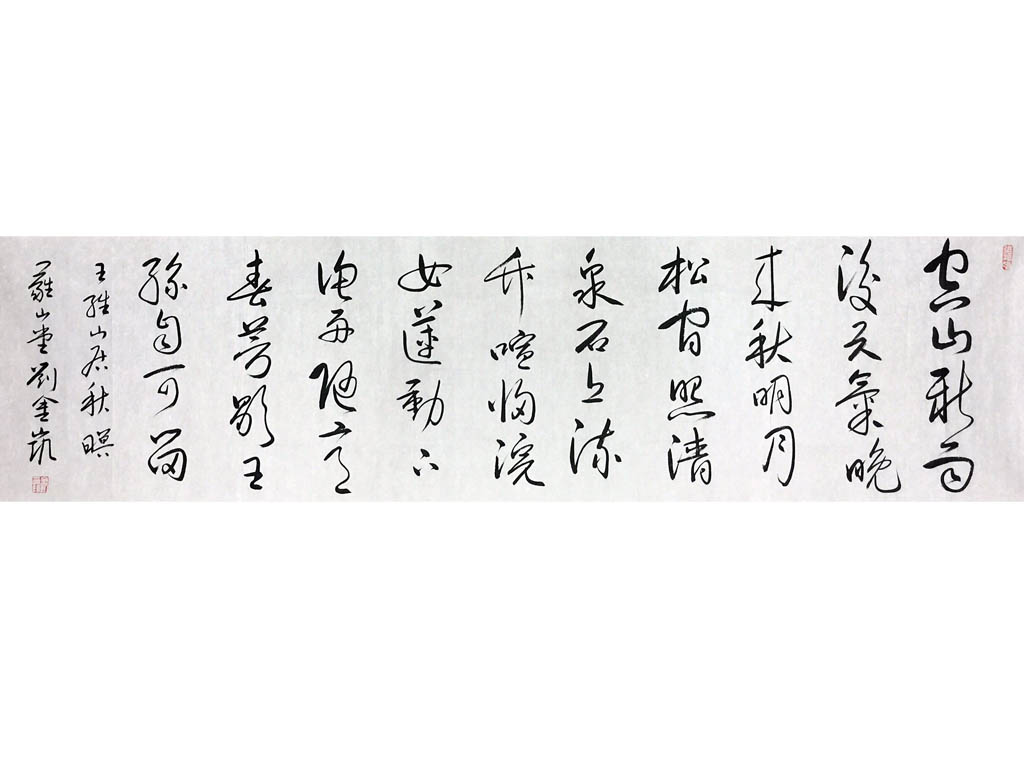 空山新雨
後天氣晚
来秋明月
松間照清
泉石上流
竹喧归浣
女蓮動下
渔舟随意
春芳歇王
孫自可留
王維山居秋暝
山堂劉金